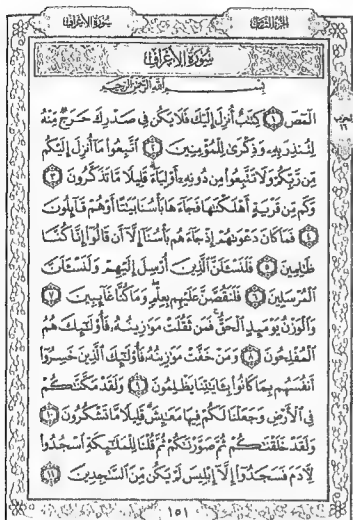 سُورَةُ الأَعْرَافِ
الجُزْءُ الثَّامِنُ
سُورَةُ الأَعْرَافِ
بِسْمِ اللَّهِ الرَّحْمَٰنِ الرَّحِيمِ
الٓمٓصٓ ١ كِتَٰبٌ أُنزِلَ إِلَيْكَ فَلَا يَكُن فِى صَدْرِكَ حَرَجٌ مِّنْهُ
لِتُنذِرَ بِهِۦ وَذِكْرَىٰ لِلْمُؤْمِنِينَ ٢ ٱتَّبِعُوا۟ مَآ أُنزِلَ إِلَيْكُم
مِّن رَّبِّكُمْ وَلَا تَتَّبِعُوا۟ مِن دُونِهِۦٓ أَوْلِيَآءَ قَلِيلًا مَّا تَذَكَّرُونَ ٣
وَكَم مِّن قَرْيَةٍ أَهْلَكْنَٰهَا فَجَآءَهَا بَأْسُنَا بَيَٰتًا أَوْ هُمْ قَآئِلُونَ
٤ فَمَا كَانَ دَعْوَىٰهُمْ إِذْ جَآءَهُم بَأْسُنَآ إِلَّآ أَن قَالُوٓا۟ إِنَّا كُنَّا
ظَٰلِمِينَ ٥ فَلَنَسْـَٔلَنَّ ٱلَّذِينَ أُرْسِلَ إِلَيْهِمْ وَلَنَسْـَٔلَنَّ
ٱلْمُرْسَلِينَ ٦ فَلَنَقُصَّنَّ عَلَيْهِم بِعِلْمٍ وَمَا كُنَّا غَآئِبِينَ ٧
وَٱلْوَزْنُ يَوْمَئِذٍ ٱلْحَقُّ فَمَن ثَقُلَتْ مَوَٰزِينُهُۥ فَأُو۟لَٰٓئِكَ هُمُ
ٱلْمُفْلِحُونَ ٨ وَمَنْ خَفَّتْ مَوَٰزِينُهُۥ فَأُو۟لَٰٓئِكَ ٱلَّذِينَ خَسِرُوٓا۟
أَنفُسَهُم بِمَا كَانُوا۟ بِـَٔايَٰتِنَا يَظْلِمُونَ ٩ وَلَقَدْ مَكَّنَّٰكُمْ
فِى ٱلْأَرْضِ وَجَعَلْنَا لَكُمْ فِيهَا مَعَٰيِشَ قَلِيلًا مَّا تَشْكُرُونَ ١٠
وَلَقَدْ خَلَقْنَٰكُمْ ثُمَّ صَوَّرْنَٰكُمْ ثُمَّ قُلْنَا لِلْمَلَٰٓئِكَةِ ٱسْجُدُوا۟
لِـَٔادَمَ فَسَجَدُوٓا۟ إِلَّآ إِبْلِيسَ لَمْ يَكُن مِّنَ ٱلسَّٰجِدِينَ ١١
الحزب
١٦
١٥١